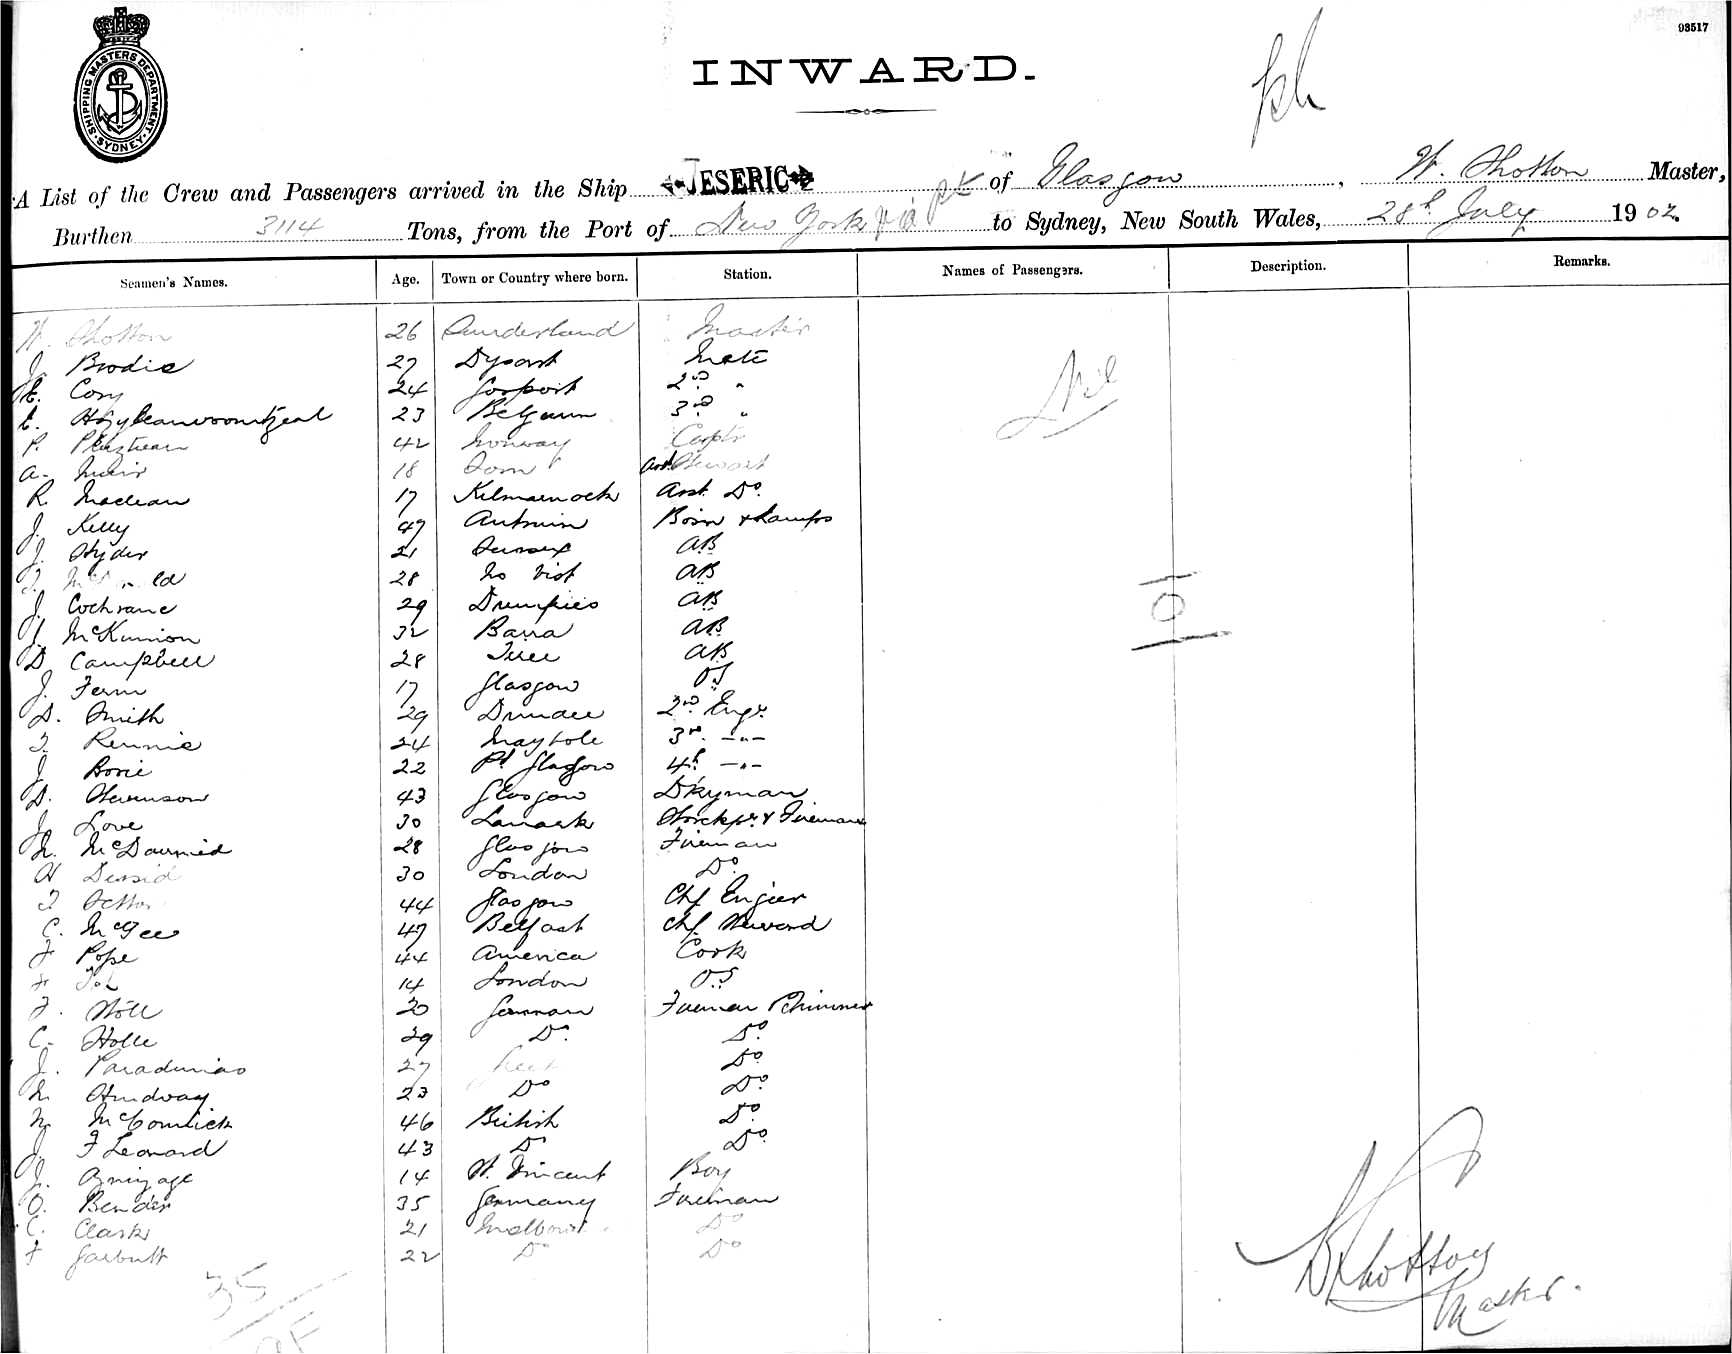 93517
SHIPPING MASTERS DEPARTMENT
SYDNEY
INWARD.
A List of the Crew and Passengers arrived in the Ship JESERIC of Glasgow, W. Shotton Master,
Burthen 3114 Tons, from the Port of New York via to Sydney, New South Wales, 28th July 1902.
Seamen's Names. Age. Town or Country where born. Station. Names of Passengers. Description. Remarks.
W. Shotton 26 Sunderland Master
J. Brodie 27 Dysart Mate Nil
E. Cory 24 Gosport 2nd "
23 Belgium 3rd "
P. 42 Norway Captr
A. Muir 18 Stewart
R. Maclean 17 Kilmarnock Asst. Do.
J. Kelly 47 Antrim Bosn & Lamps
J. Hyder 21 Sussex AB
28 No Vist AB
J. Cochrane 29 Dumfries AB
J. McKinnon 32 Barra AB
D. Campbell 28 Tiree AB
J. Ferm 17 Glasgow OS
D. Smith 29 Dundee 2nd Engr.
T. Rennie 24 Maybole 3rd. —"—
J. Borie 22 Pt Glasgow 4th —"—
D. Stevenson 43 Glasgow Dkyman
J. Love 30 Lanark Storekpr & Fireman
N. McDarmid 28 Glasgow Fireman
H 30 London Do
T. 44 Glasgow Chf Engier
C. McGee 47 Belfast Chf Steward
F Pope 44 America Cook
14 London OS
F. Stoll 20 German Fireman & Trimmer
C. Holle 29 Do. Do.
J. 27 Do.
N. 23 Do Do.
N. McCormick 46 British Do.
J. F Leonard 43 Do Do.
J. 14 St. Vincent Boy
O. Bender 35 Germany Fireman
C. Clark 21 Do
F Garbutt 22 Do Do
35
W Shotton
Master.